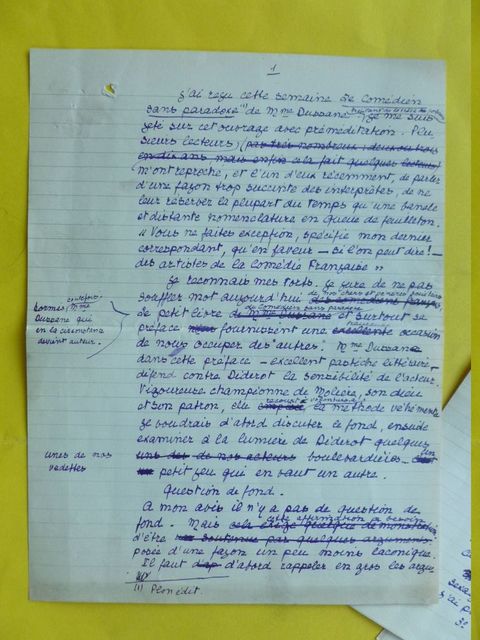 1
J'ai reçu cette semaine "Le Comédien
sans paradoxe" (1) de Mme Dussane. Je me suis
jeté sur cet ouvrage avec préméditation. Plu
sieurs lecteurs, (pas très nombreux : deux ou trois
en dix ans mais enfin cela fait quelques lecteurs)
m'ont reproché, et l'un d'eux récemment, de parler
d'une façon trop succincte des interprètes, de ne
leur réserver la plupart du temps qu'une banale
et distante nomenclature en queue de feuilleton.
"Vous ne faites exception, spécifie mon dernier
correspondant, qu'en faveur — si l'on peut dire! —
des artistes de la Comédie Française"
Je reconnais mes torts. Je jure de ne pas
souffler mot aujourd'hui
hormis toutefois
Mme
Dussane qui
en la circonstance
devient auteur.
Le petit livre de Mme Dussane et surtout sa
préface fourniront une excellente occasion
de nous occuper des autres. Mme Dussane
dans cette préface — excellent pastiche littéraire —
défend contre Diderot la sensibilité de l'acteur.
Vigoureuse championne de Molière, son dieu
et son patron, elle la méthode véhémente
Je voudrais d'abord discuter le fond, ensuite
examiner à la lumière de Diderot quelques
unes de nos
vedettes
uns des de nos acteurs boulevardières — un
petit jeu qui en vaut un autre.
Question de fond.
A mon avis il n'y a pas de question de
fond. Mais cette affirmation a besoin
d'être soutenue par quelques arguments
posée d'une façon un peu moins laconique.
Il faut d'abord rappeler en gros les argu
(1) Plon édit.